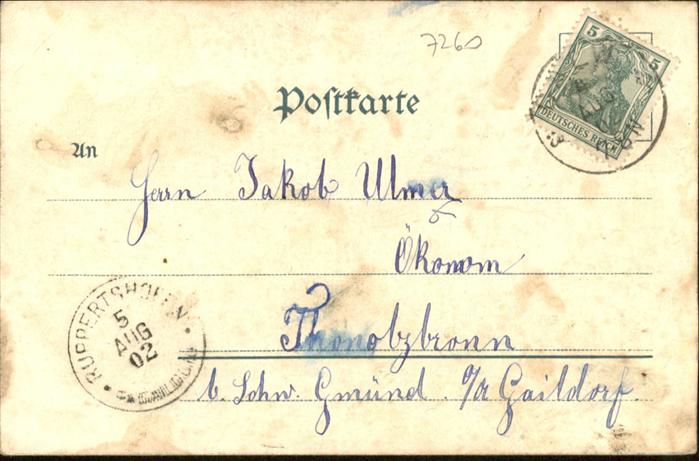 7260
5 5
DEUTSCHES REICH
AUG
Postkarte
An
Herrn Jakob Ulmer
Ökonom
Thonolzbronn
b. Schw. Gmünd. O/A Gaildorf.
RUPPERTSHOFEN
5
AUG
02